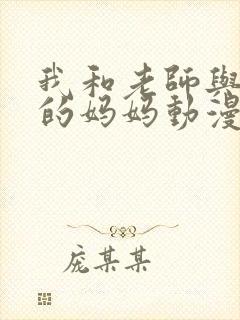 我和老師與
的妈妈動漫
庞某某